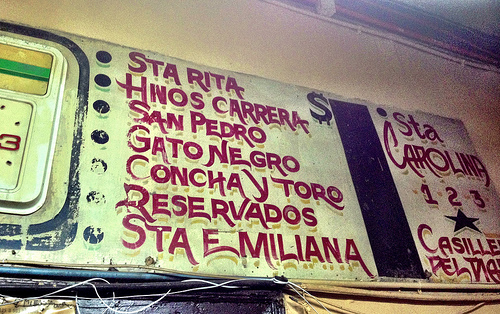 STA RITA
HNOS CARRERA
SAN PEDRO
GATO NEGRO
CONCHA Y TORO
RESERVADOS
STA EMILIANA
$
Sta
CAROLINA
1 2 3
3